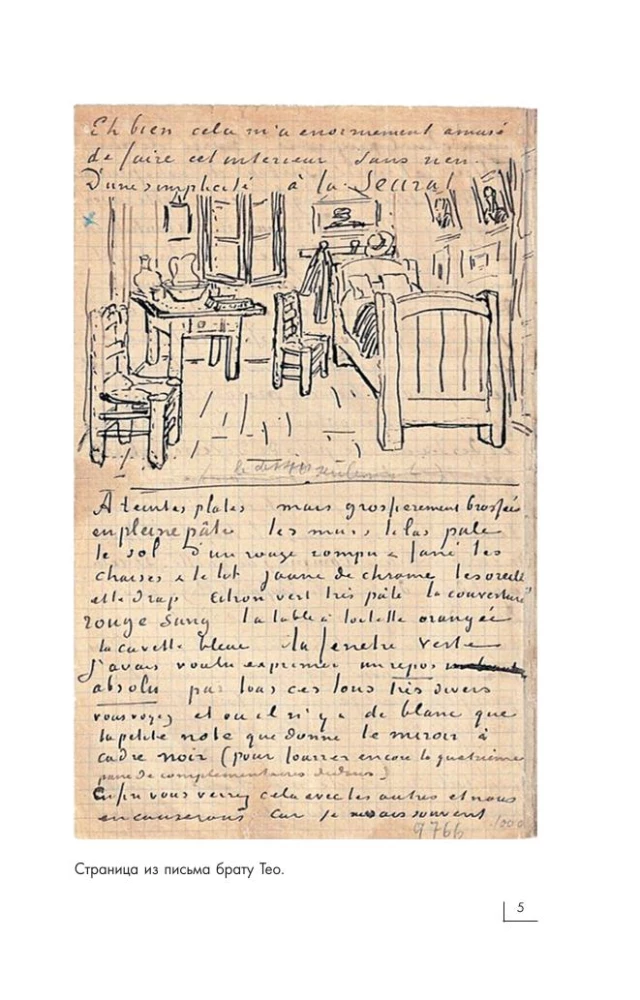 Eh bien cela m'a enormement amusé
de faire cet interieur sans rien.
D'une simplicité à la Seurat
A teintes plates mais grossierement brossées
en pleine pâte les murs lilas pale
le sol d'un rouge rompu & fané les
chaises & le lit jaune de chrome les oreill
et le drap citron vert très pâle la couverture
rouge sang la table à toilette orangée
la cuvette bleue la fenetre verte
J'avais voulu exprimer un repos
absolu par tous ces tons très divers
vous voyez et ou il n'y a de blanc que
la petite note que donne le miroir à
cadre noir (pour fourrer encore la quatrième
paire de complementaires dedans)
Enfin vous verrez cela avec les autres et nous
en causerons car je souvent
9766 1000
Страница из письма брату Тео.
5